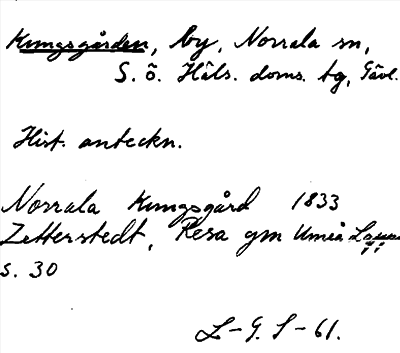 Kungsgården, by, Norrala sn,
S. ö. Häls. doms. tg, Gävl.
Hist. anteckn.
Norrala Kungsgård 1833
Zetterstedt, Resa gm Umeå
s. 30
L-G. S-61.